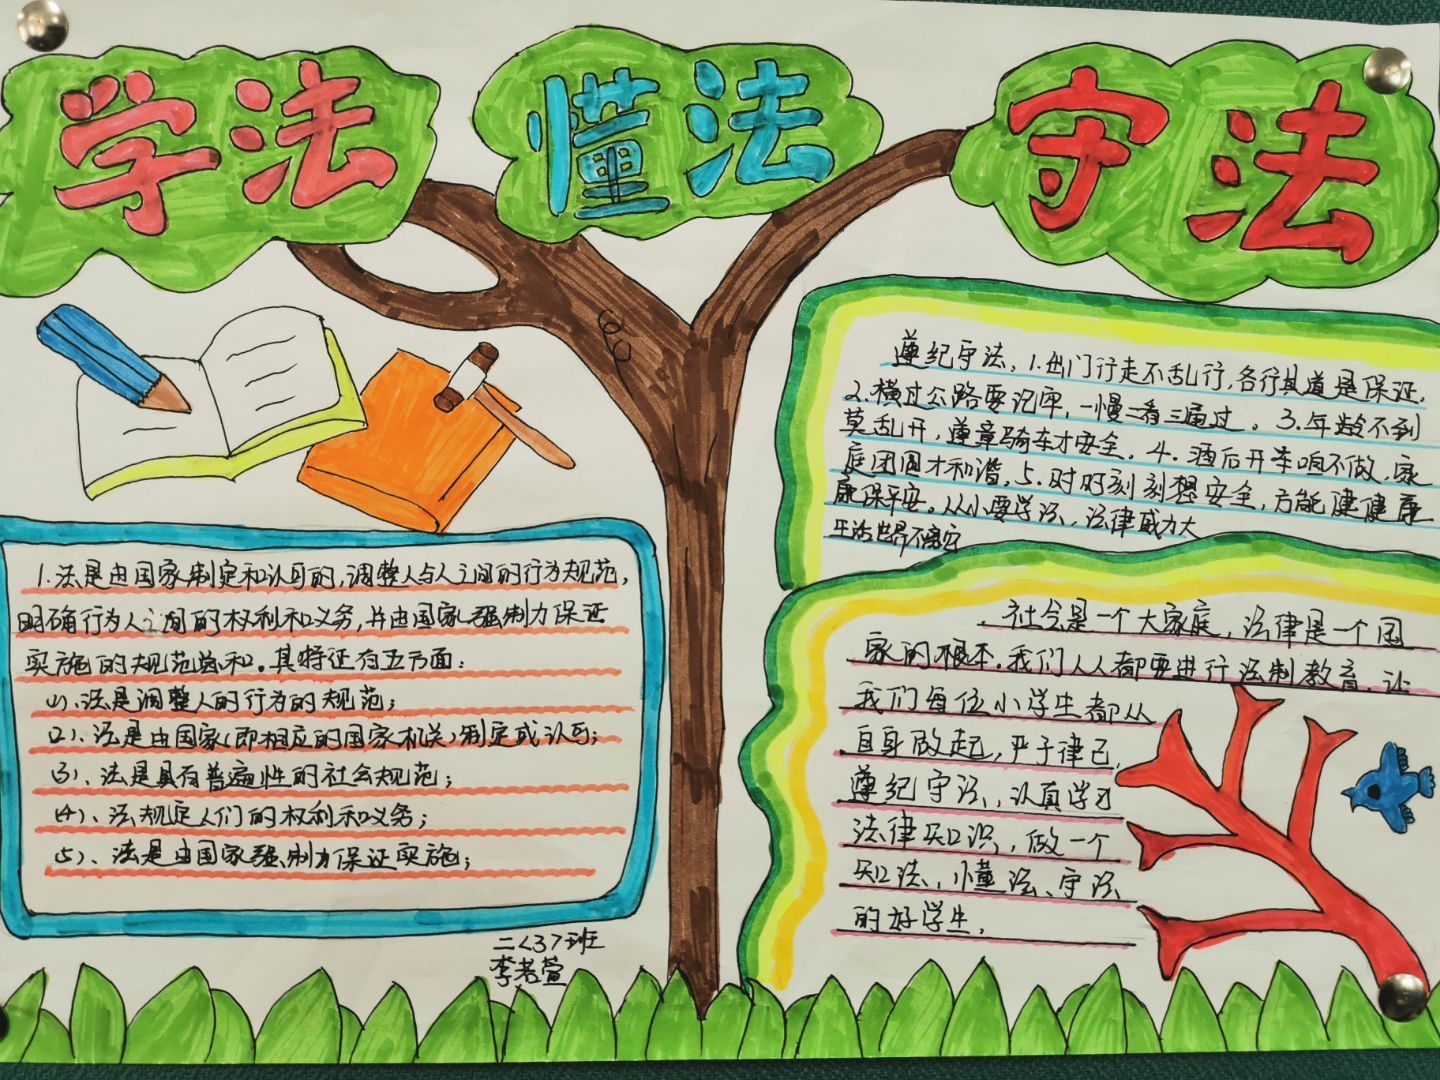 学法 懂法 守法
遵纪守法,1.出门行走不乱行,各行其道是保证,
2.横过公路要记牢,一慢二看三通过。3.年龄不到
莫乱开,遵章骑车才安全。4.酒后开车咱不做,家
庭团圆才和谐,5.时时刻刻想安全,方能健健康
康保平安。从小要学法,法律威力大
生活世界不离它
1.法是由国家制定和认可的,调整人与人之间的行为规范,
明确行为人之间的权利和义务,并由国家强制力保证
实施的规范总和。其特征有五方面:
(1)、法是调整人的行为的规范;
(2)、法是由国家(即相应的国家机关)制定或认可;
(3)、法是具有普遍性的社会规范;
(4)、法规定人们的权利和义务;
(5)、法是由国家强制力保证实施;
二<3>班
李若萱
社会是一个大家庭,法律是一个国
家的根本。我们人人都要进行法制教育,让
我们每位小学生都从
自身做起,严于律己,
遵纪守法,认真学习
法律知识,做一个
知法、懂法、守法
的好学生,